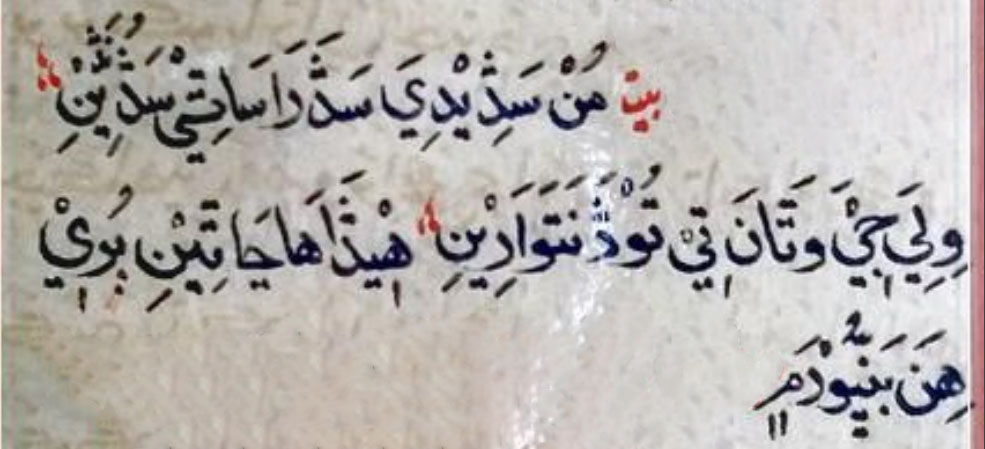 بيت مُنْ سَڎِيْدِيَ سَڎَ رَاسَاتِيْ سَڎُنِّيْنِ
وِلِيَ جِيْ وَتَانَ تِيْ تُوْدُنَتَوَارِيْنِ هِيْذَا هَا جَا تِيْنِ بُوِيْ
هِنَ بَنِيُّودَمٍ